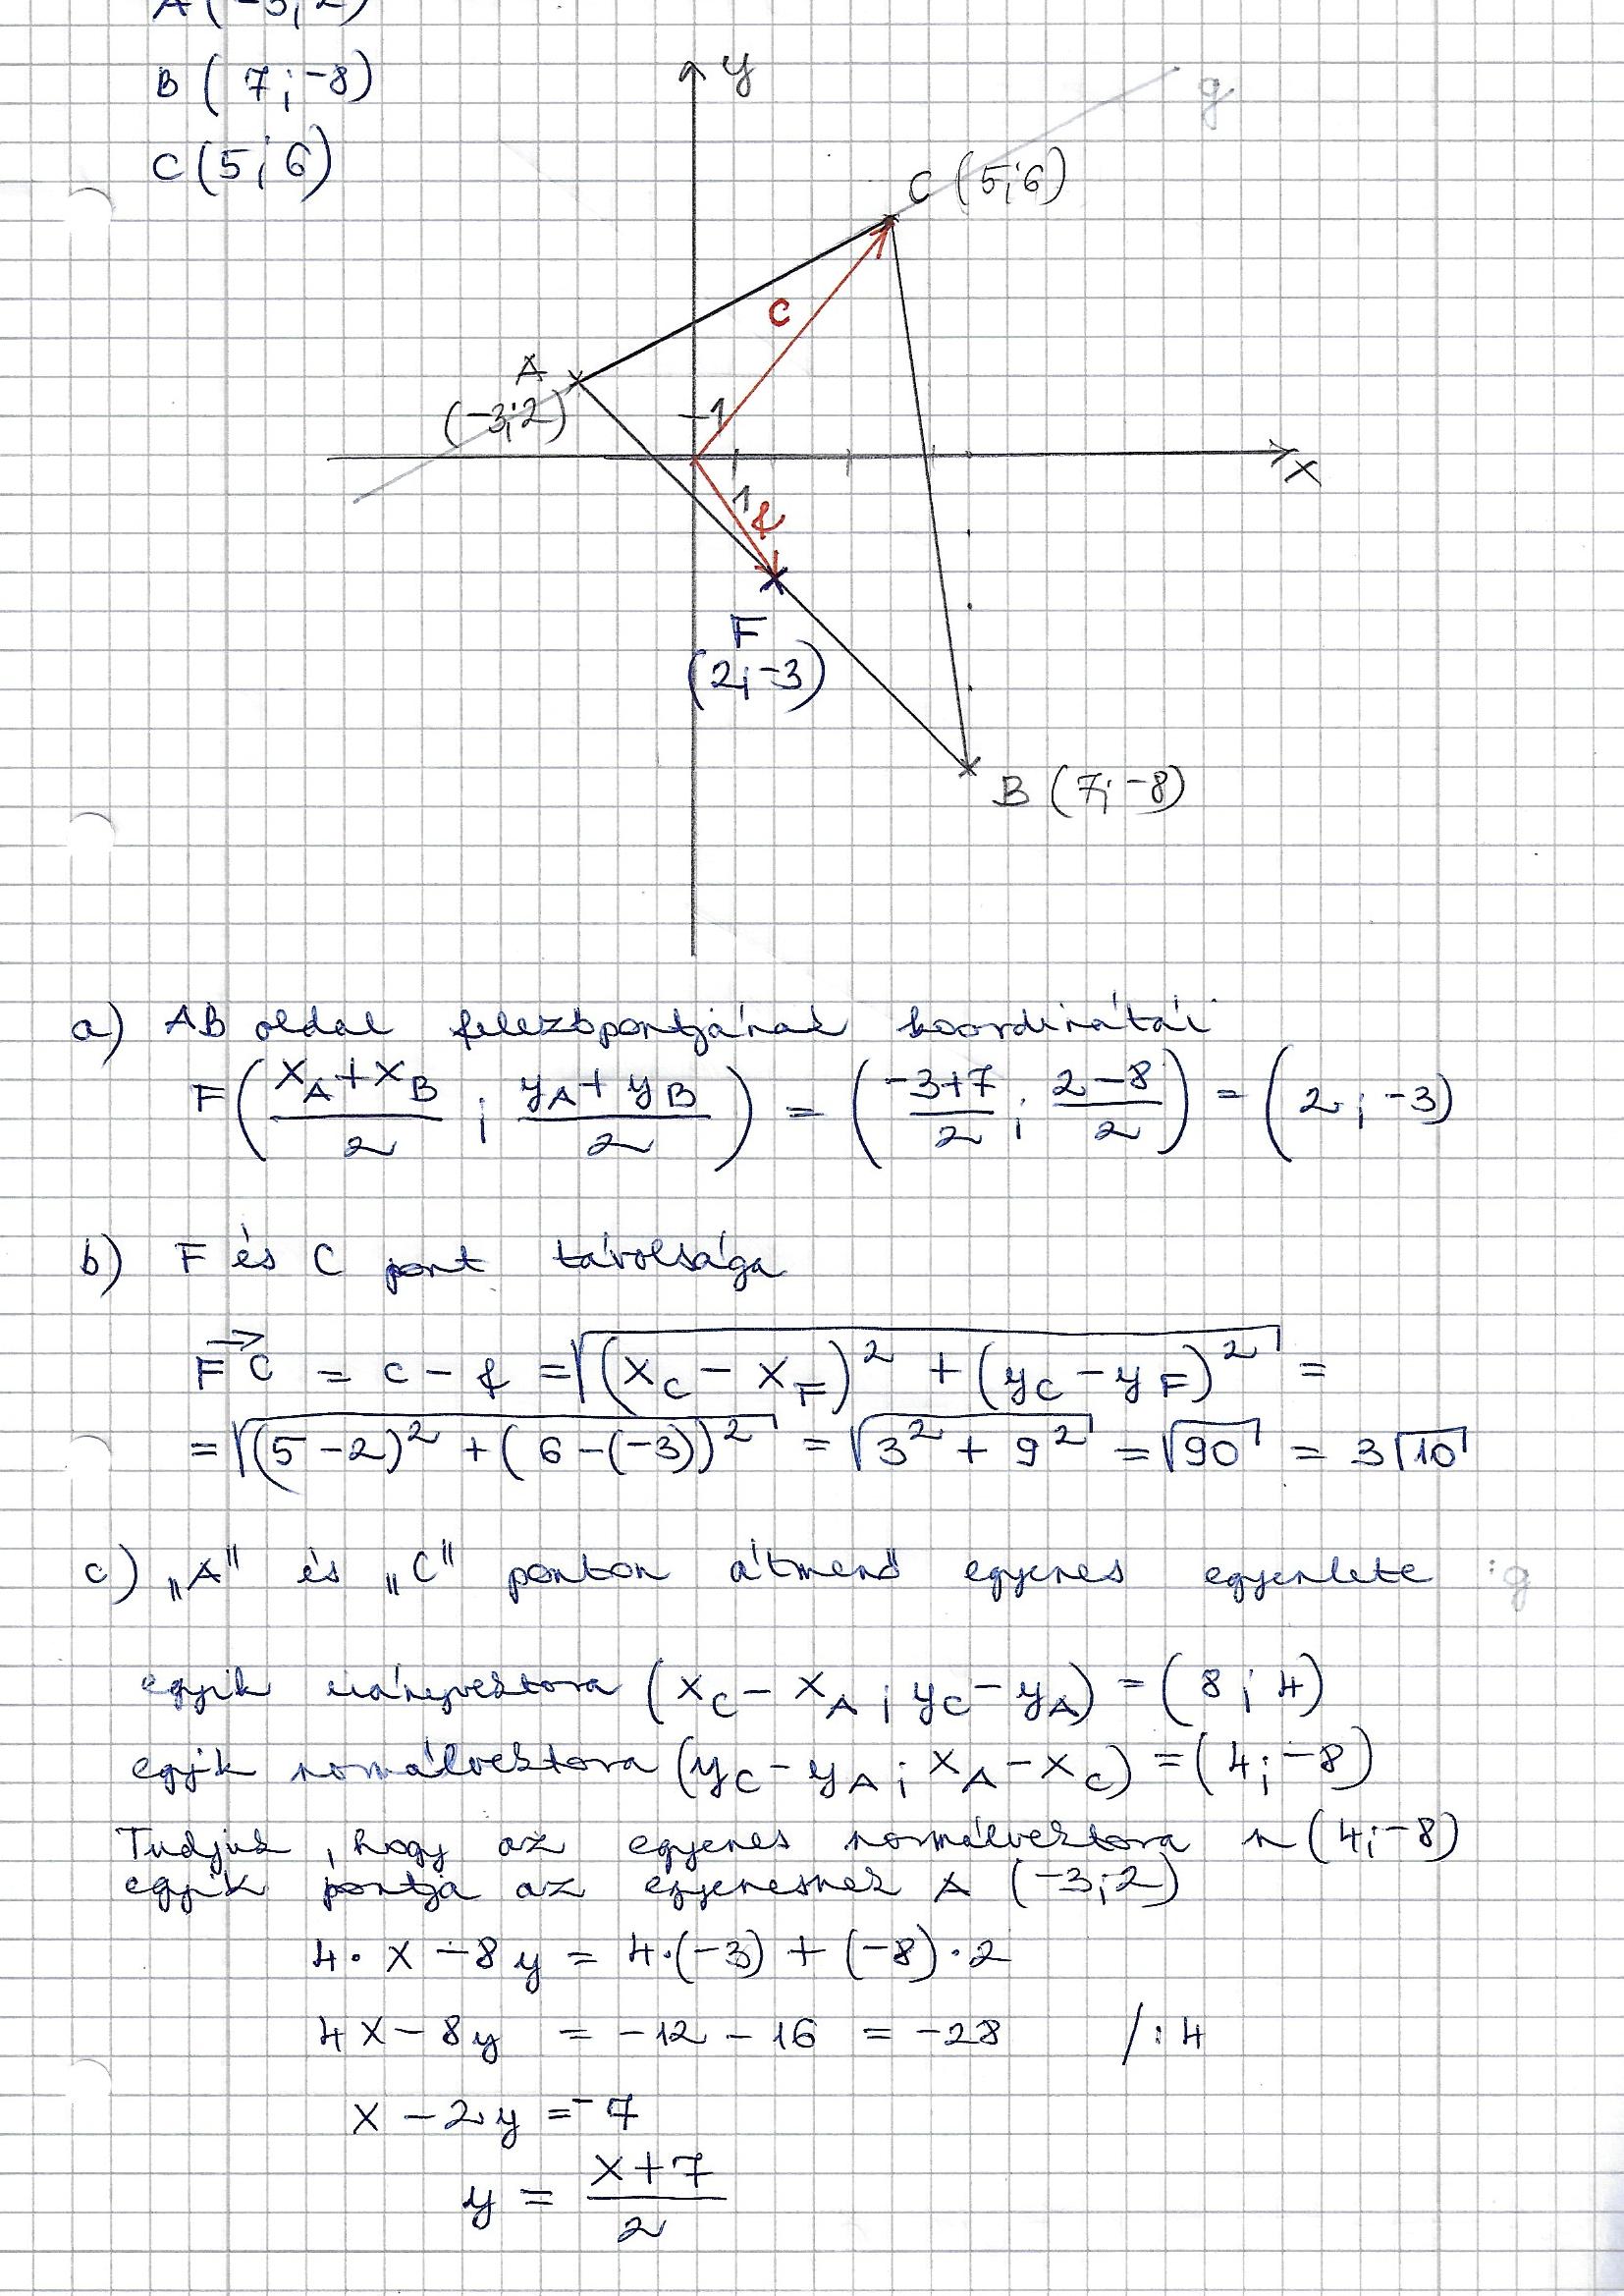 A(-3; 2)
B ( 7; -8)
C (5; 6)
y
g
C (5; 6)
c
A
(-3; 2)
1
x
1
f
F
(2; -3)
B (7; -8)
a) AB oldal felezőpontjának koordinátái
F((x_A + x_B)/2 ; (y_A + y_B)/2) = ((-3+7)/2 ; (2-8)/2) = (2 ; -3)
b) F és C pont távolsága
F⃗C = c - f = √((x_C - x_F)² + (y_C - y_F)²) =
= √((5-2)² + (6-(-3))²) = √(3² + 9²) = √90 = 3√10
c) „A" és „C" ponton átmenő egyenes egyenlete : g
egyik irányvektora (x_C - x_A ; y_C - y_A) = (8 ; 4)
egyik normálvektora (y_C - y_A ; x_A - x_C) = (4; -8)
Tudjuk, hogy az egyenes normálvektora n (4; -8)
egyik pontja az egyenesnek A (-3; 2)
4 · x - 8y = 4·(-3) + (-8)·2
4x - 8y = -12 - 16 = -28 / : 4
x - 2y = -7
y = (x+7)/2